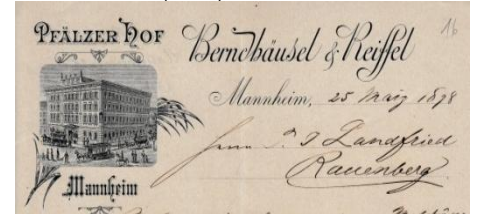 PFÄLZER HOF
Berndhäusel & Reiffel
16
Mannheim, 25 März 1898
Herrn P. J. Landfried
Rauenberg
Mannheim